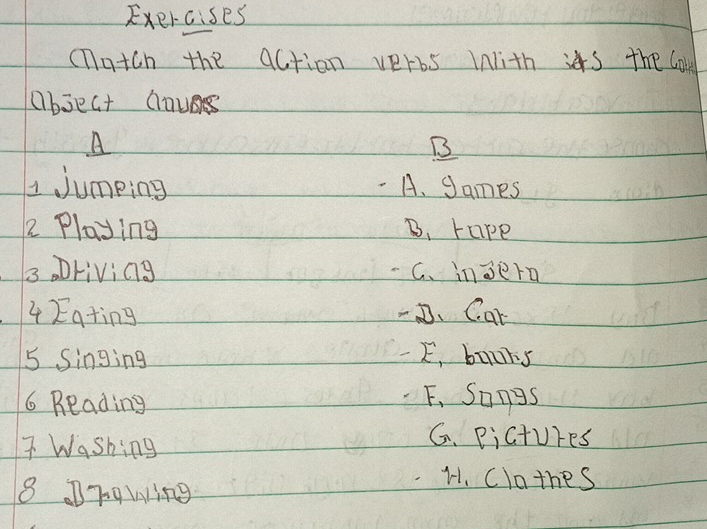 Exercises
Match the action verbs with its the
object
A B
1 Jumping - A. games
2 Playing B. rape
3 Driving - C. injera
4 Eating - D. Car
5 Singing - E. books
6 Reading - F. Songs
7 Washing G. pictures
8 Drawing - H. Clothes